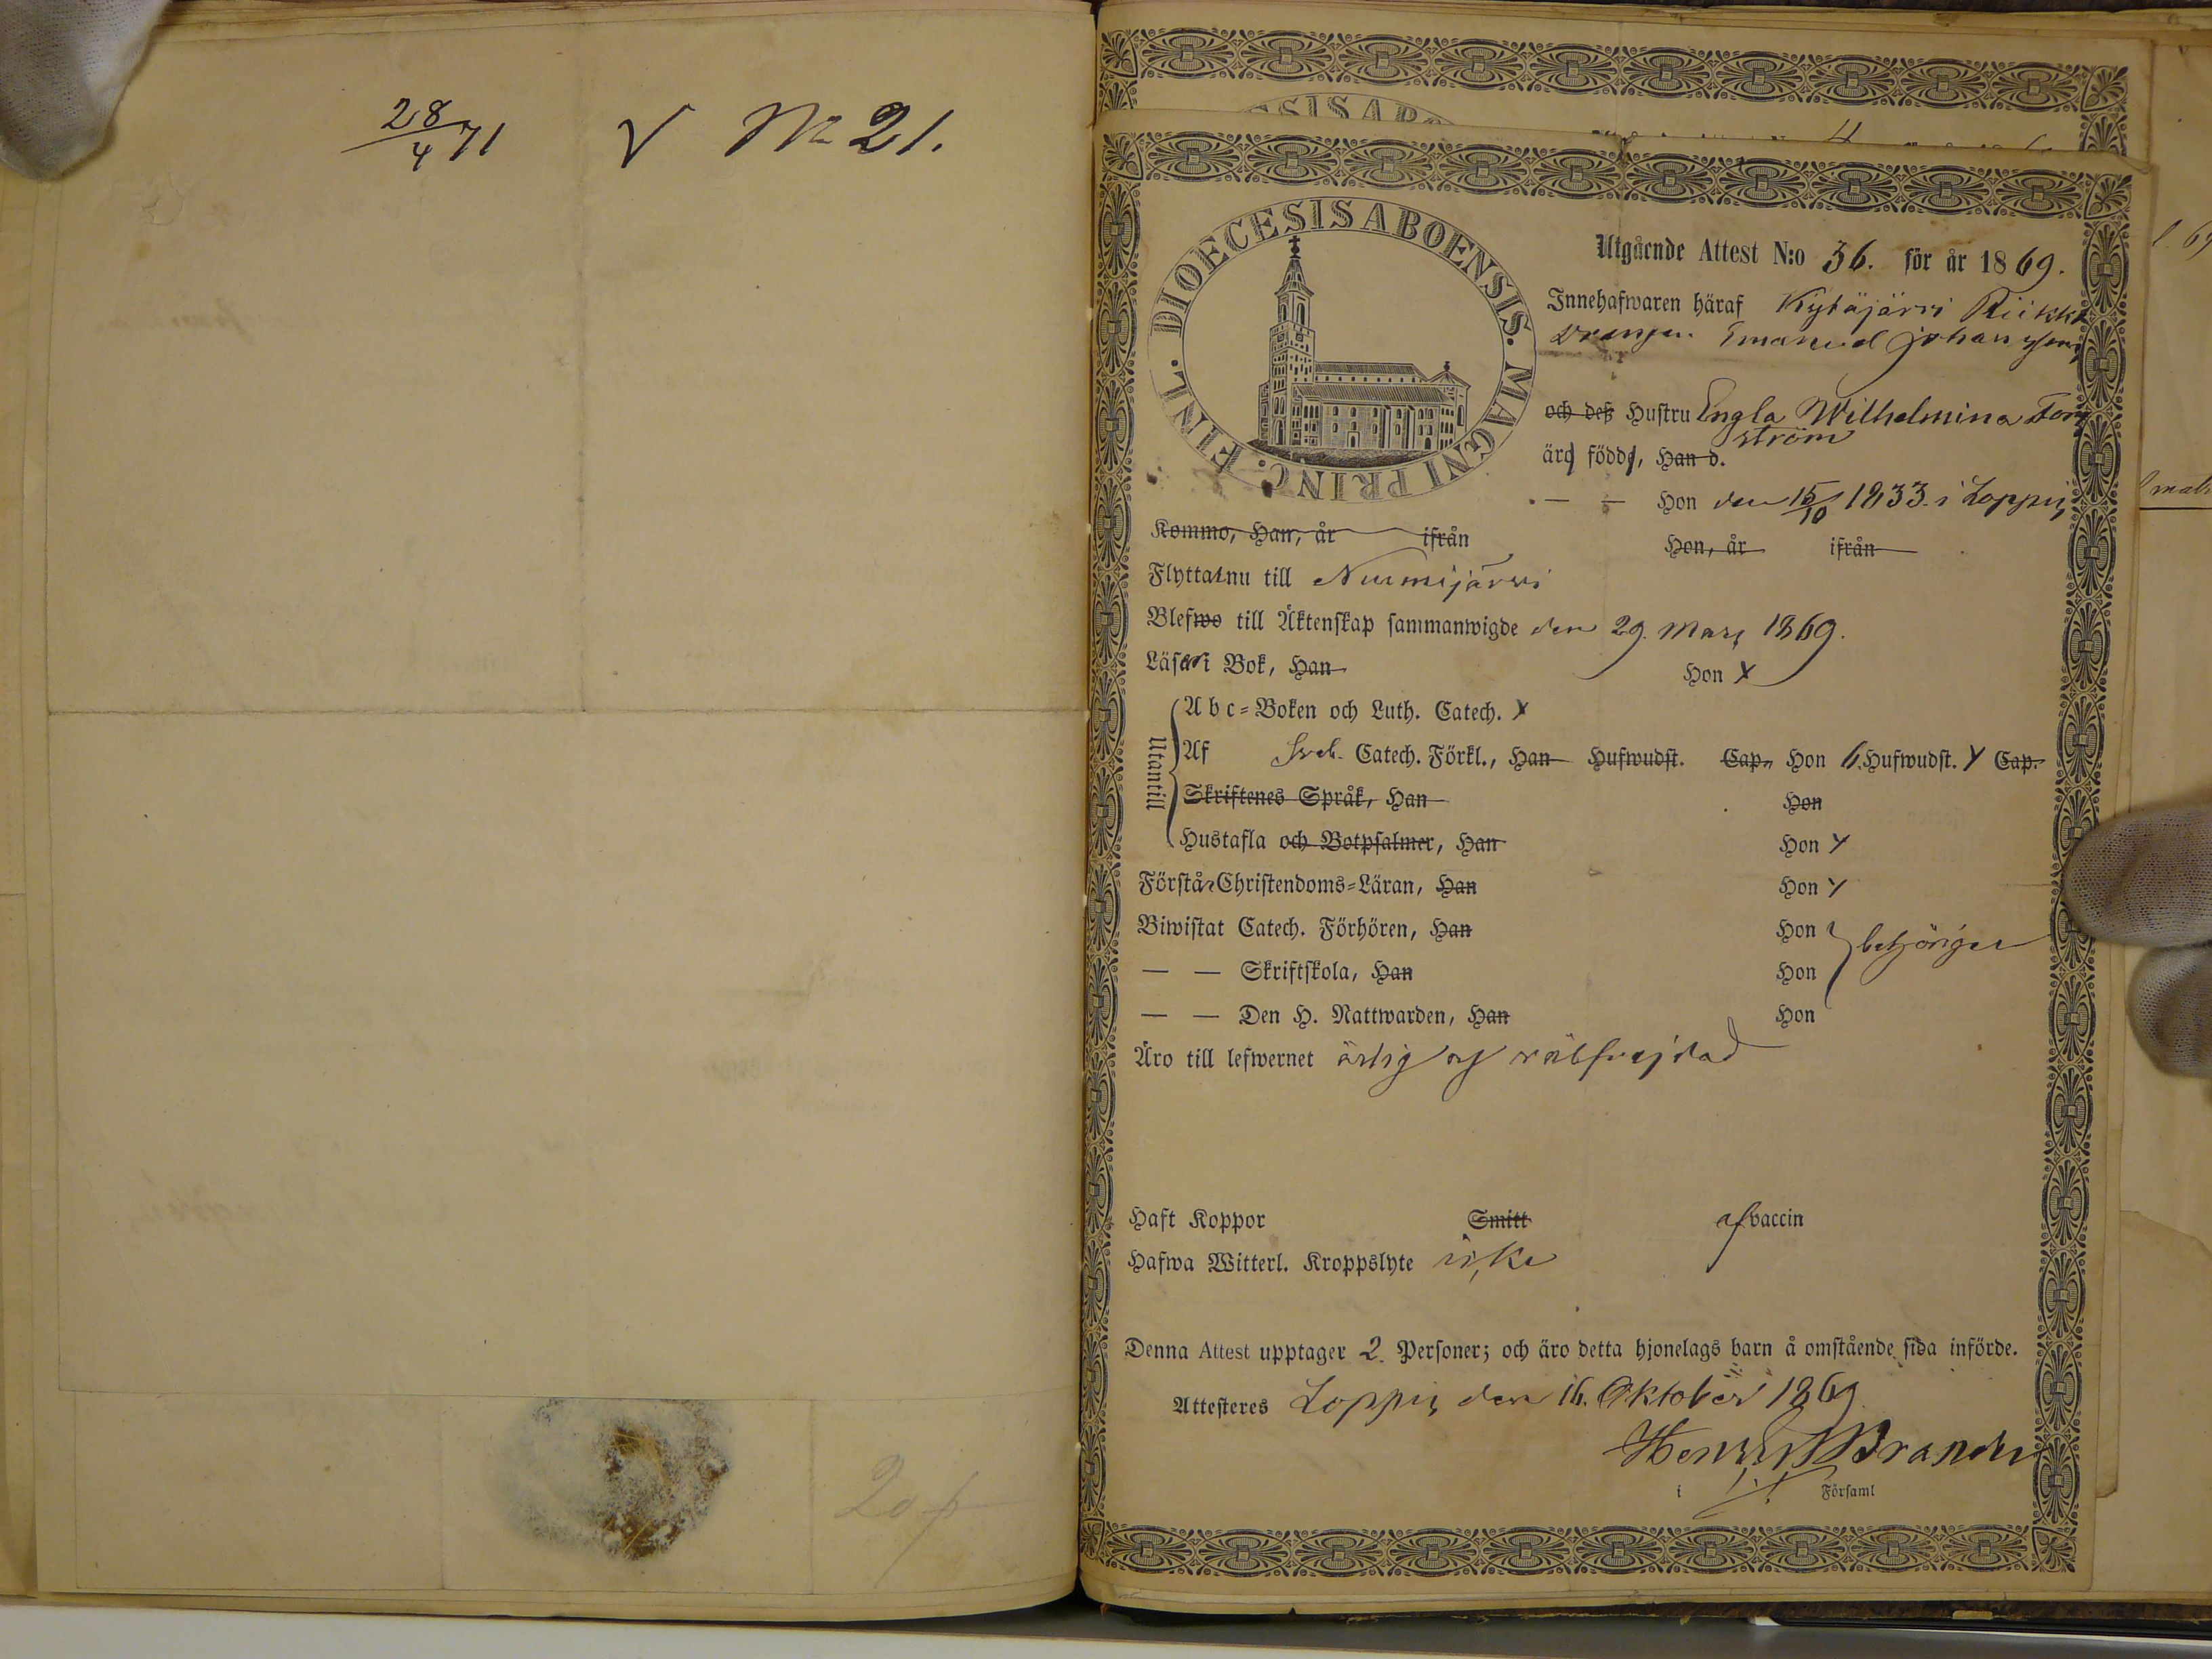 28/4 71 √ No 21.
20 p
DIOECESIS ABOENSIS. MAGNI PRINC. FINL.
Utgående Attest N:o 36. för år 1869.
Innehafwaren häraf Kytäjärvi Riikka
Drengen Emanuel Johansson
och deß Hustru Engla Wilhelmina Forsström
äro födde, Han d.
— — Hon den 15/10 1833 i Loppis
Kommo, Han, år ifrån Hon, år ifrån
Flyttar nu till Nurmijärvi
Blefwo till Äktenskap sammanwigde den 29. Mars 1869.
Läser i Bok, Han Hon X
Utantill
Abc-Boken och Luth. Catech. X
Af Sveb. Catech. Förkl., Han Hufwudst. Cap., Hon 6. Hufwudst. Y Cap.
Skriftenes Språk, Han Hon
Hustafla och Botpsalmer, Han Hon Y
Förstår Christendoms-Läran, Han Hon Y
Biwistat Catech. Förhören, Han Hon behörigen
— — Skriftskola, Han Hon
— — Den H. Nattwarden, Han Hon
Äro till lefwernet ärlig och välfrejdad
Haft Koppor Smitt af vaccin
Hafwa Witterl. Kroppslyte icke
Denna Attest upptager 2. Personer; och äro detta hjonelags barn å omstående sida införde.
Attesteres Loppis den 16. Oktober 1869
Brander
i Församl